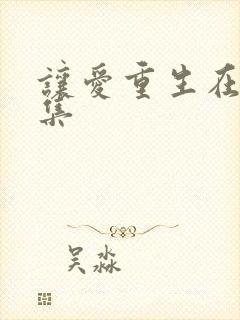 讓愛重生在
集
吴淼